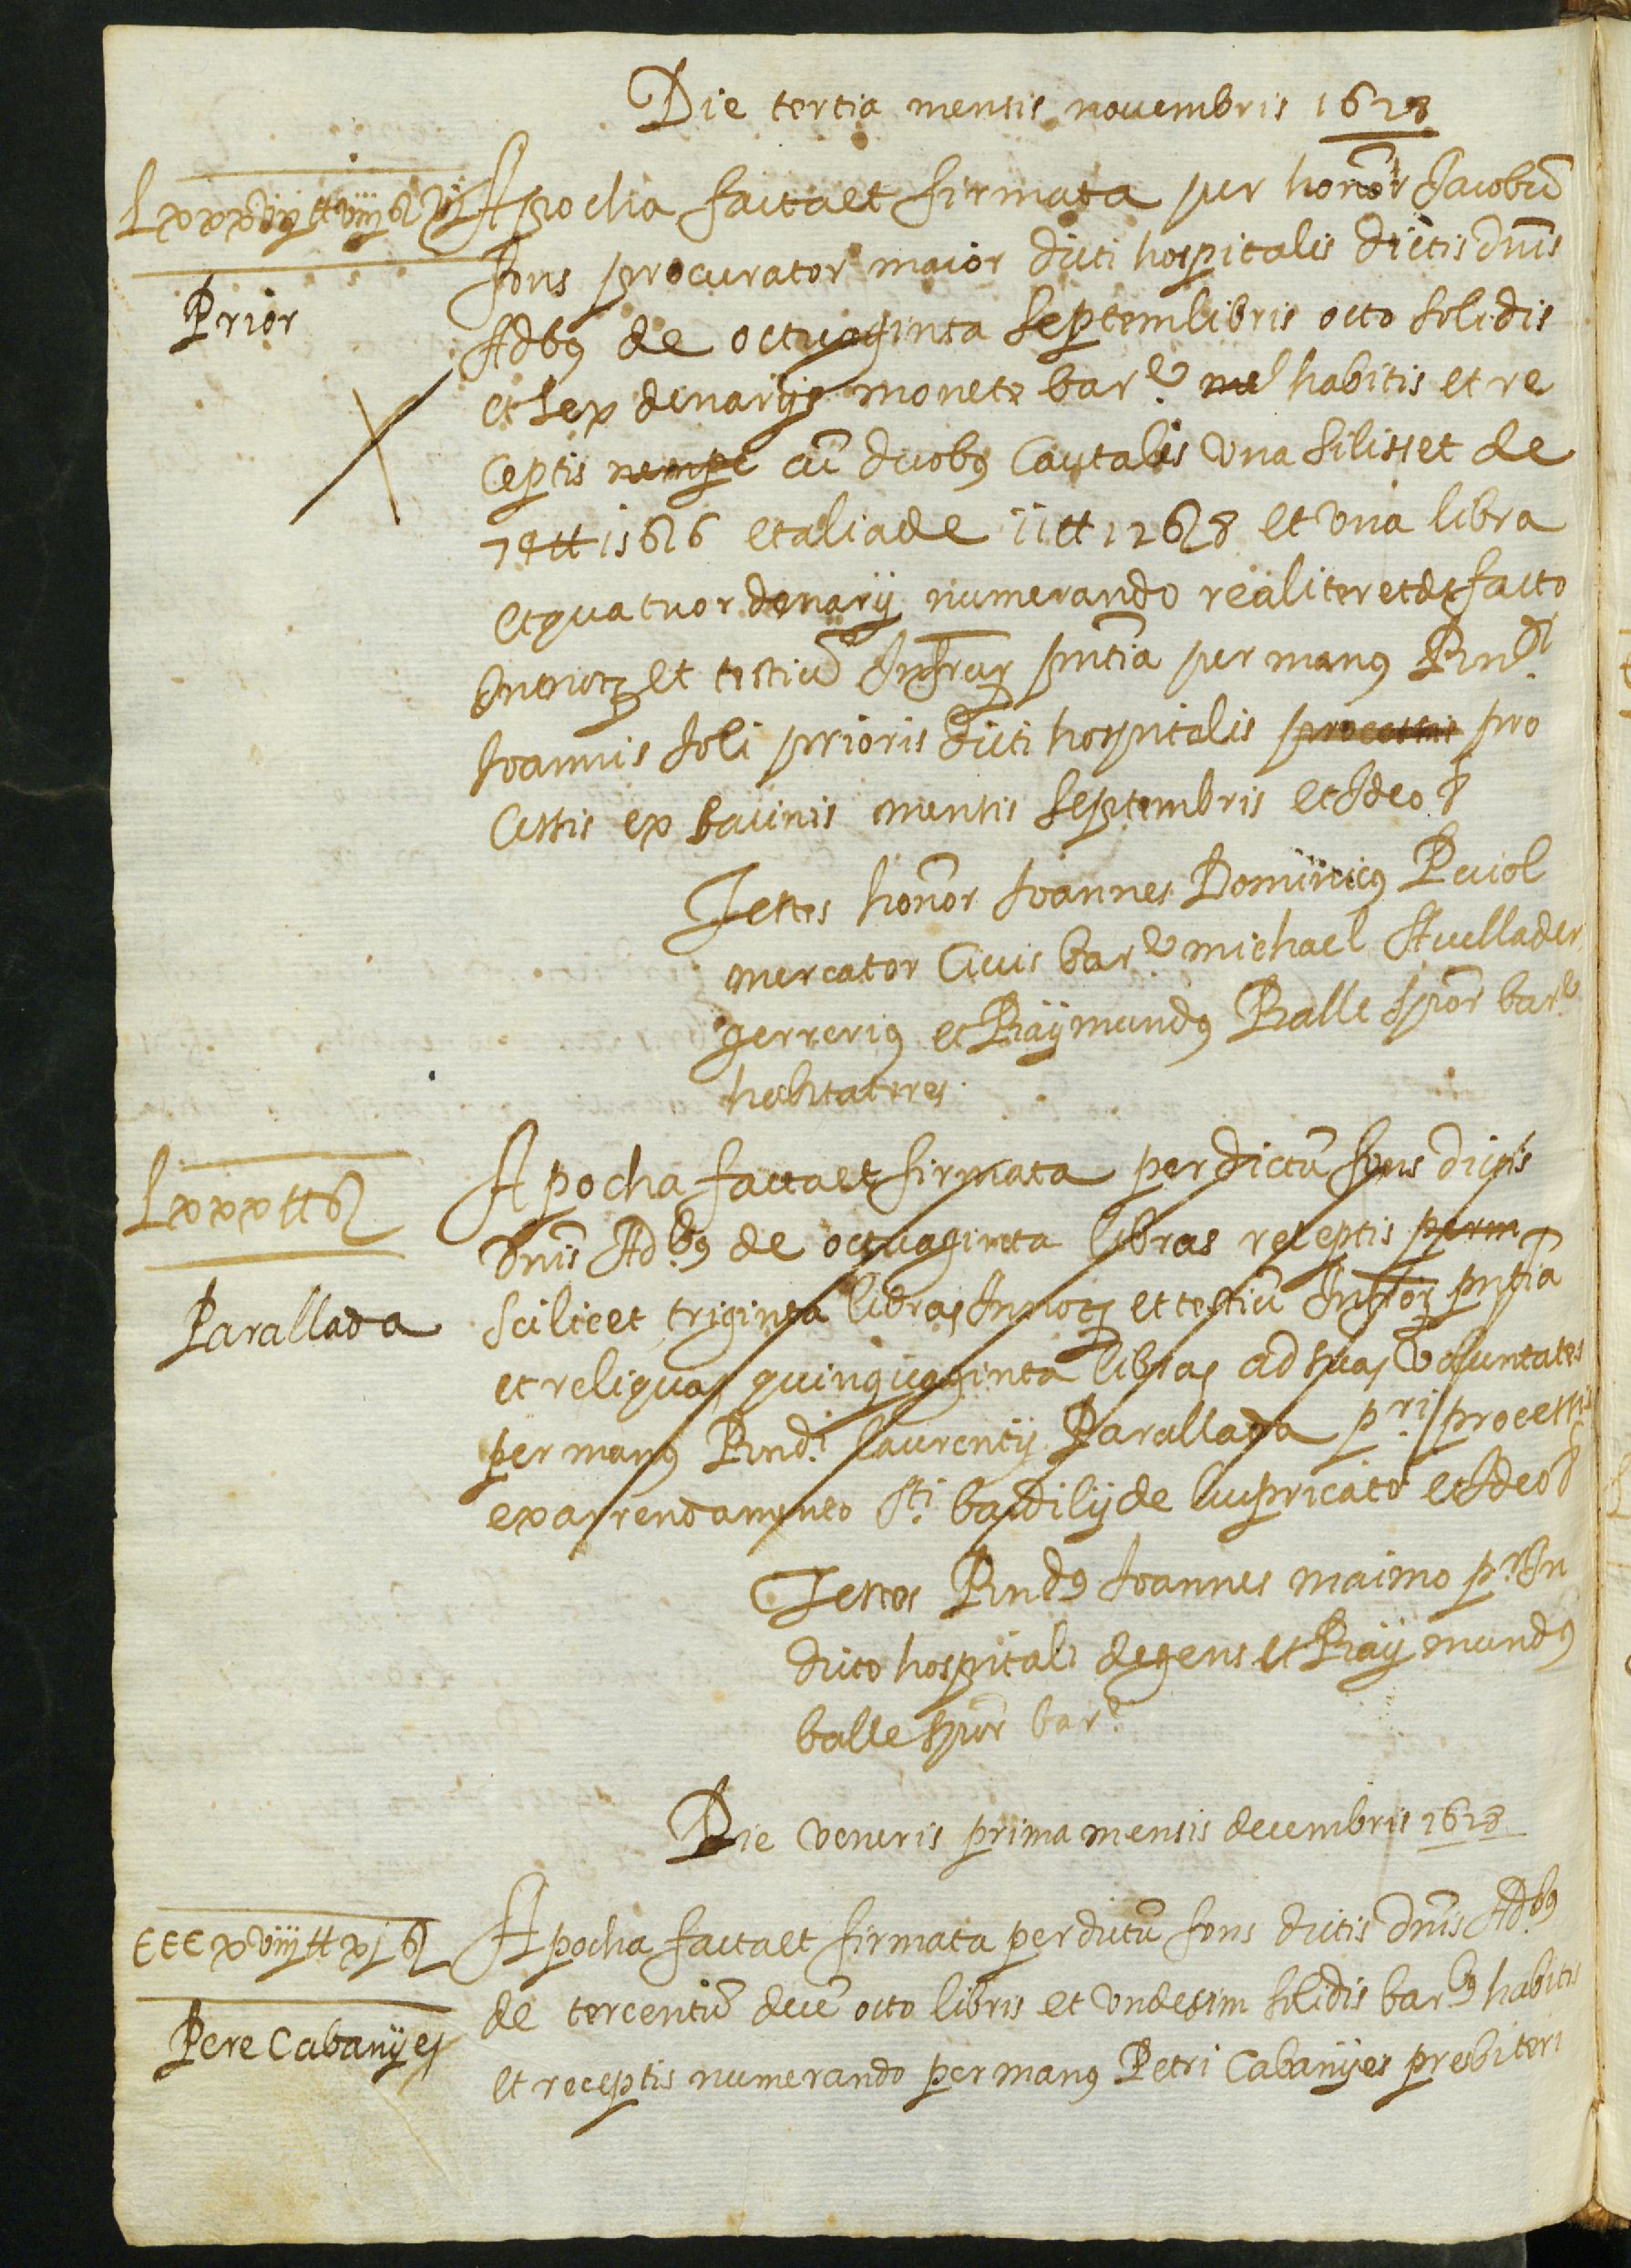 Die tertia mensis novembris 1628
Apocha facta et firmata per honor Jacobũ
fons procurator maior dicti hospitalis dictis dnis
Adbꝰ de octuaginta septem libris octo solidis
et sex denarijs monete bar.e habitis et re
Prior
ceptis nempe cũ duobꝰ Cautalis una silisset de
74 ₶ 15 ß 6 et alia de 11 ₶ 12 ß 8 et una libra
et quatuor denarij numerando realiter et de facto
In not et testiũ Infrar pñtia per manꝰ Rndi
Joannis soli prioris dicti hospitalis pro
cessis ex bacinis mensis septembris et Ideo
Testes honor Joannes Dominicꝰ Puiol
mercator Civis bar.e michael Avellader
gerrerius et Raÿmundꝰ Balle spor bar.e
habitatores
Lxxx ₶ ß
Parallada
Apocha facta et firmata per dictũ fons dictis
dnis Ad.bꝰ de octuaginta libras receptis
scilicet triginta libras In not et testiũ Infror pñtia
et reliquas quinquaginta libras ad suas voluntates
per manꝰ Rndi laurentij Parallada p.ri processis
ex arrendamento Sti baudilij de lupricato et Ideo
Testes Rndꝰ Joannes maimo p.r In
dicto hospitali degens et Raÿmundꝰ
balle spor bar.e
Die veneris prima mensis decembris 1628
CCCxviij ₶ xj ß
Pere Cabanÿes
Apocha facta et firmata per dictũ fons dictis dnis Ad.bꝰ
de tercentũ decẽ octo libris et undesim solidis bar.bꝰ habitis
et receptis numerando per manꝰ Petri Cabanÿes presbiteri